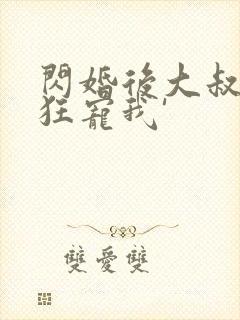 閃婚後大叔
狂寵我'
雙愛雙